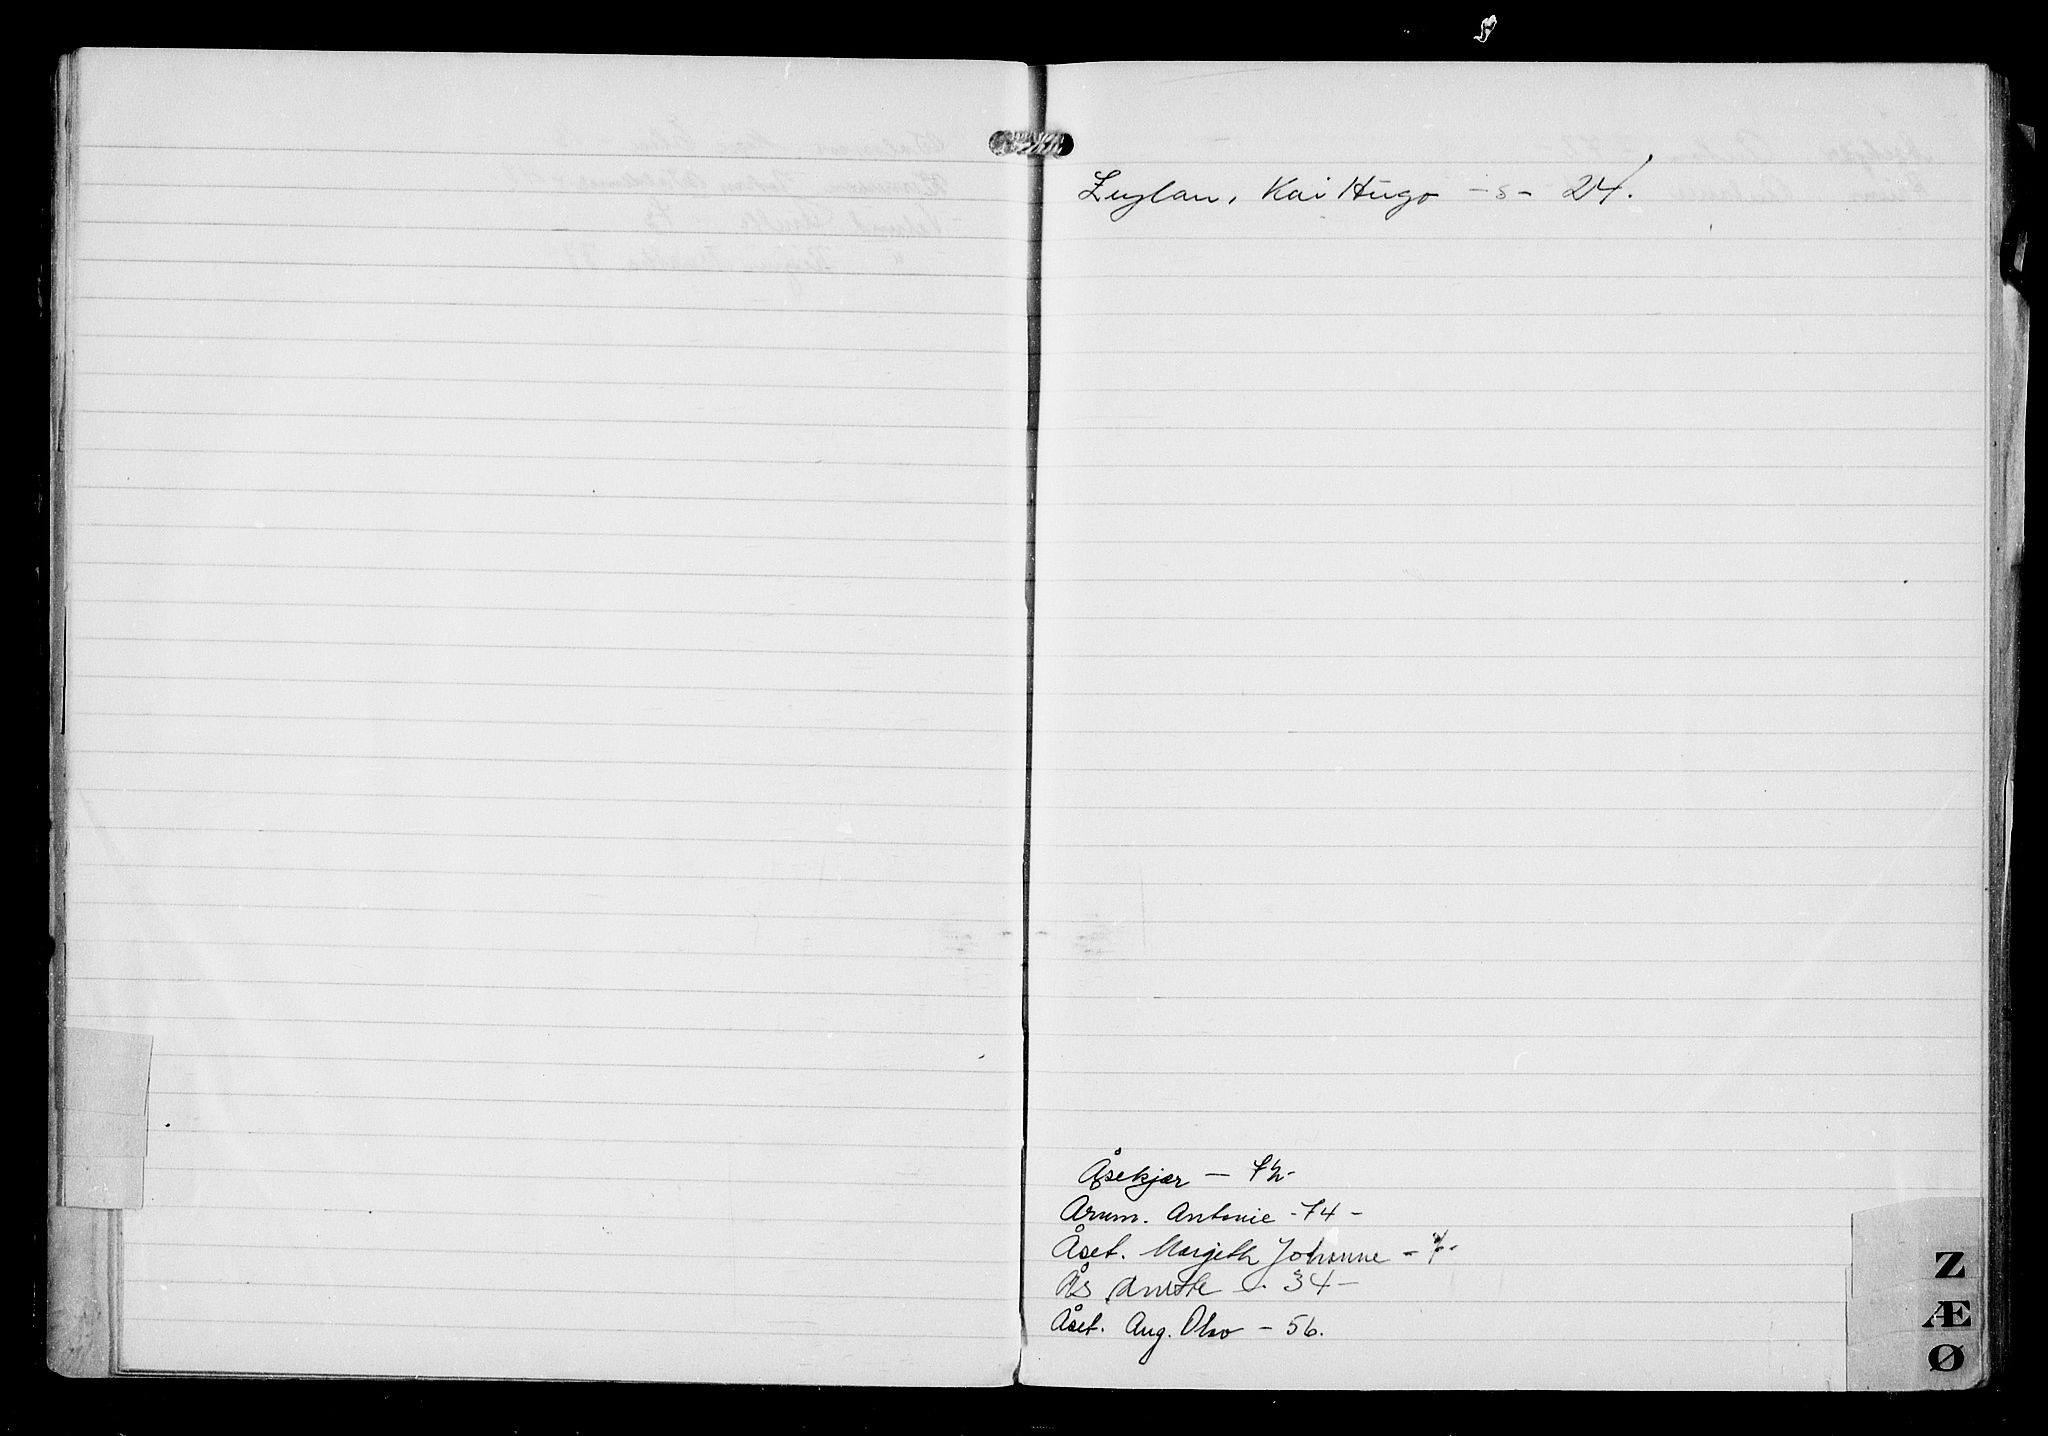 Kai Hugo -s- 24.
Åsekjær —
Arum. Antonie -74-
Åset. Margeth Johanne -
Ås Anette - 34-
Åset. Aug. Olav - 56.
Z
Æ
Ø